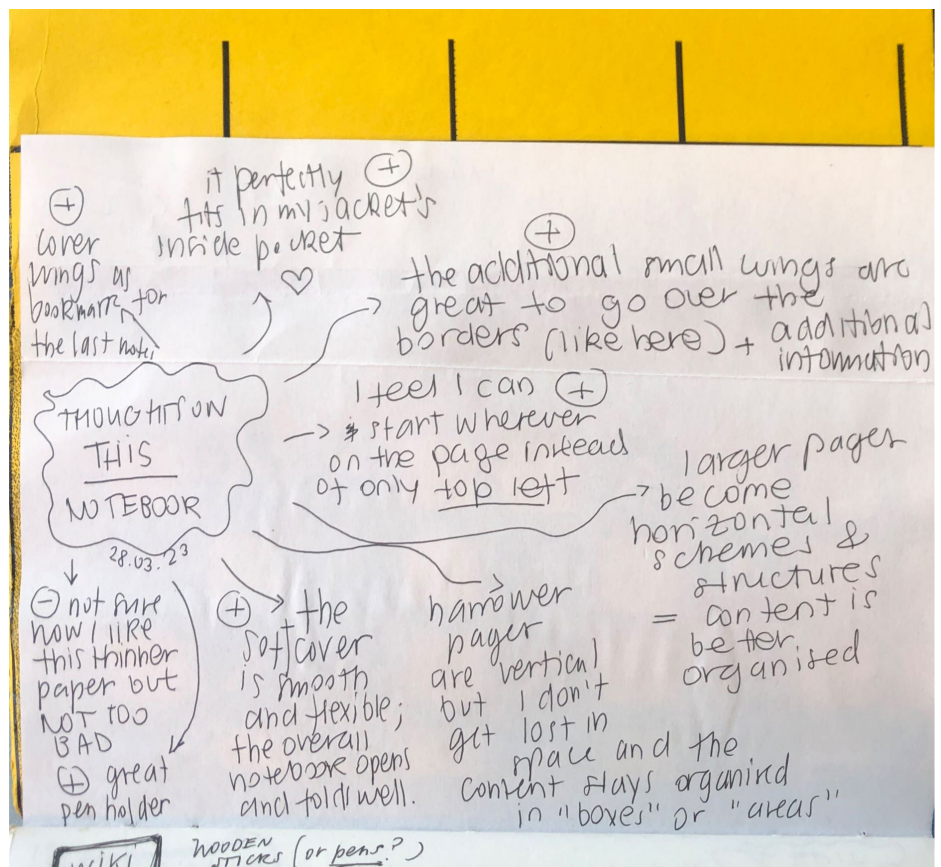 ⊕
cover
wings as
bookmark for
the last note
it perfectly ⊕
fits in my jacket's
inside pocket
♡
⊕
the additional small wings are
great to go over the
borders (like here) + additional
information
THOUGHTS ON
THIS
NOTEBOOK
28.03.23
I feel I can ⊕
start wherever
on the page instead
of only top left
larger pages
become
horizontal
schemes &
structures
= content is
better
organised
⊖ not sure
how I like
this thinner
paper but
NOT TOO
BAD
⊕ great
pen holder
⊕ → the
softcover
is smooth
and flexible;
the overall
notebook opens
and folds well.
narrower
pages
are vertical
but I don't
get lost in
space and the
content stays organised
in "boxes" or "areas"
wiki
WOODEN
STICKS (or pens?)